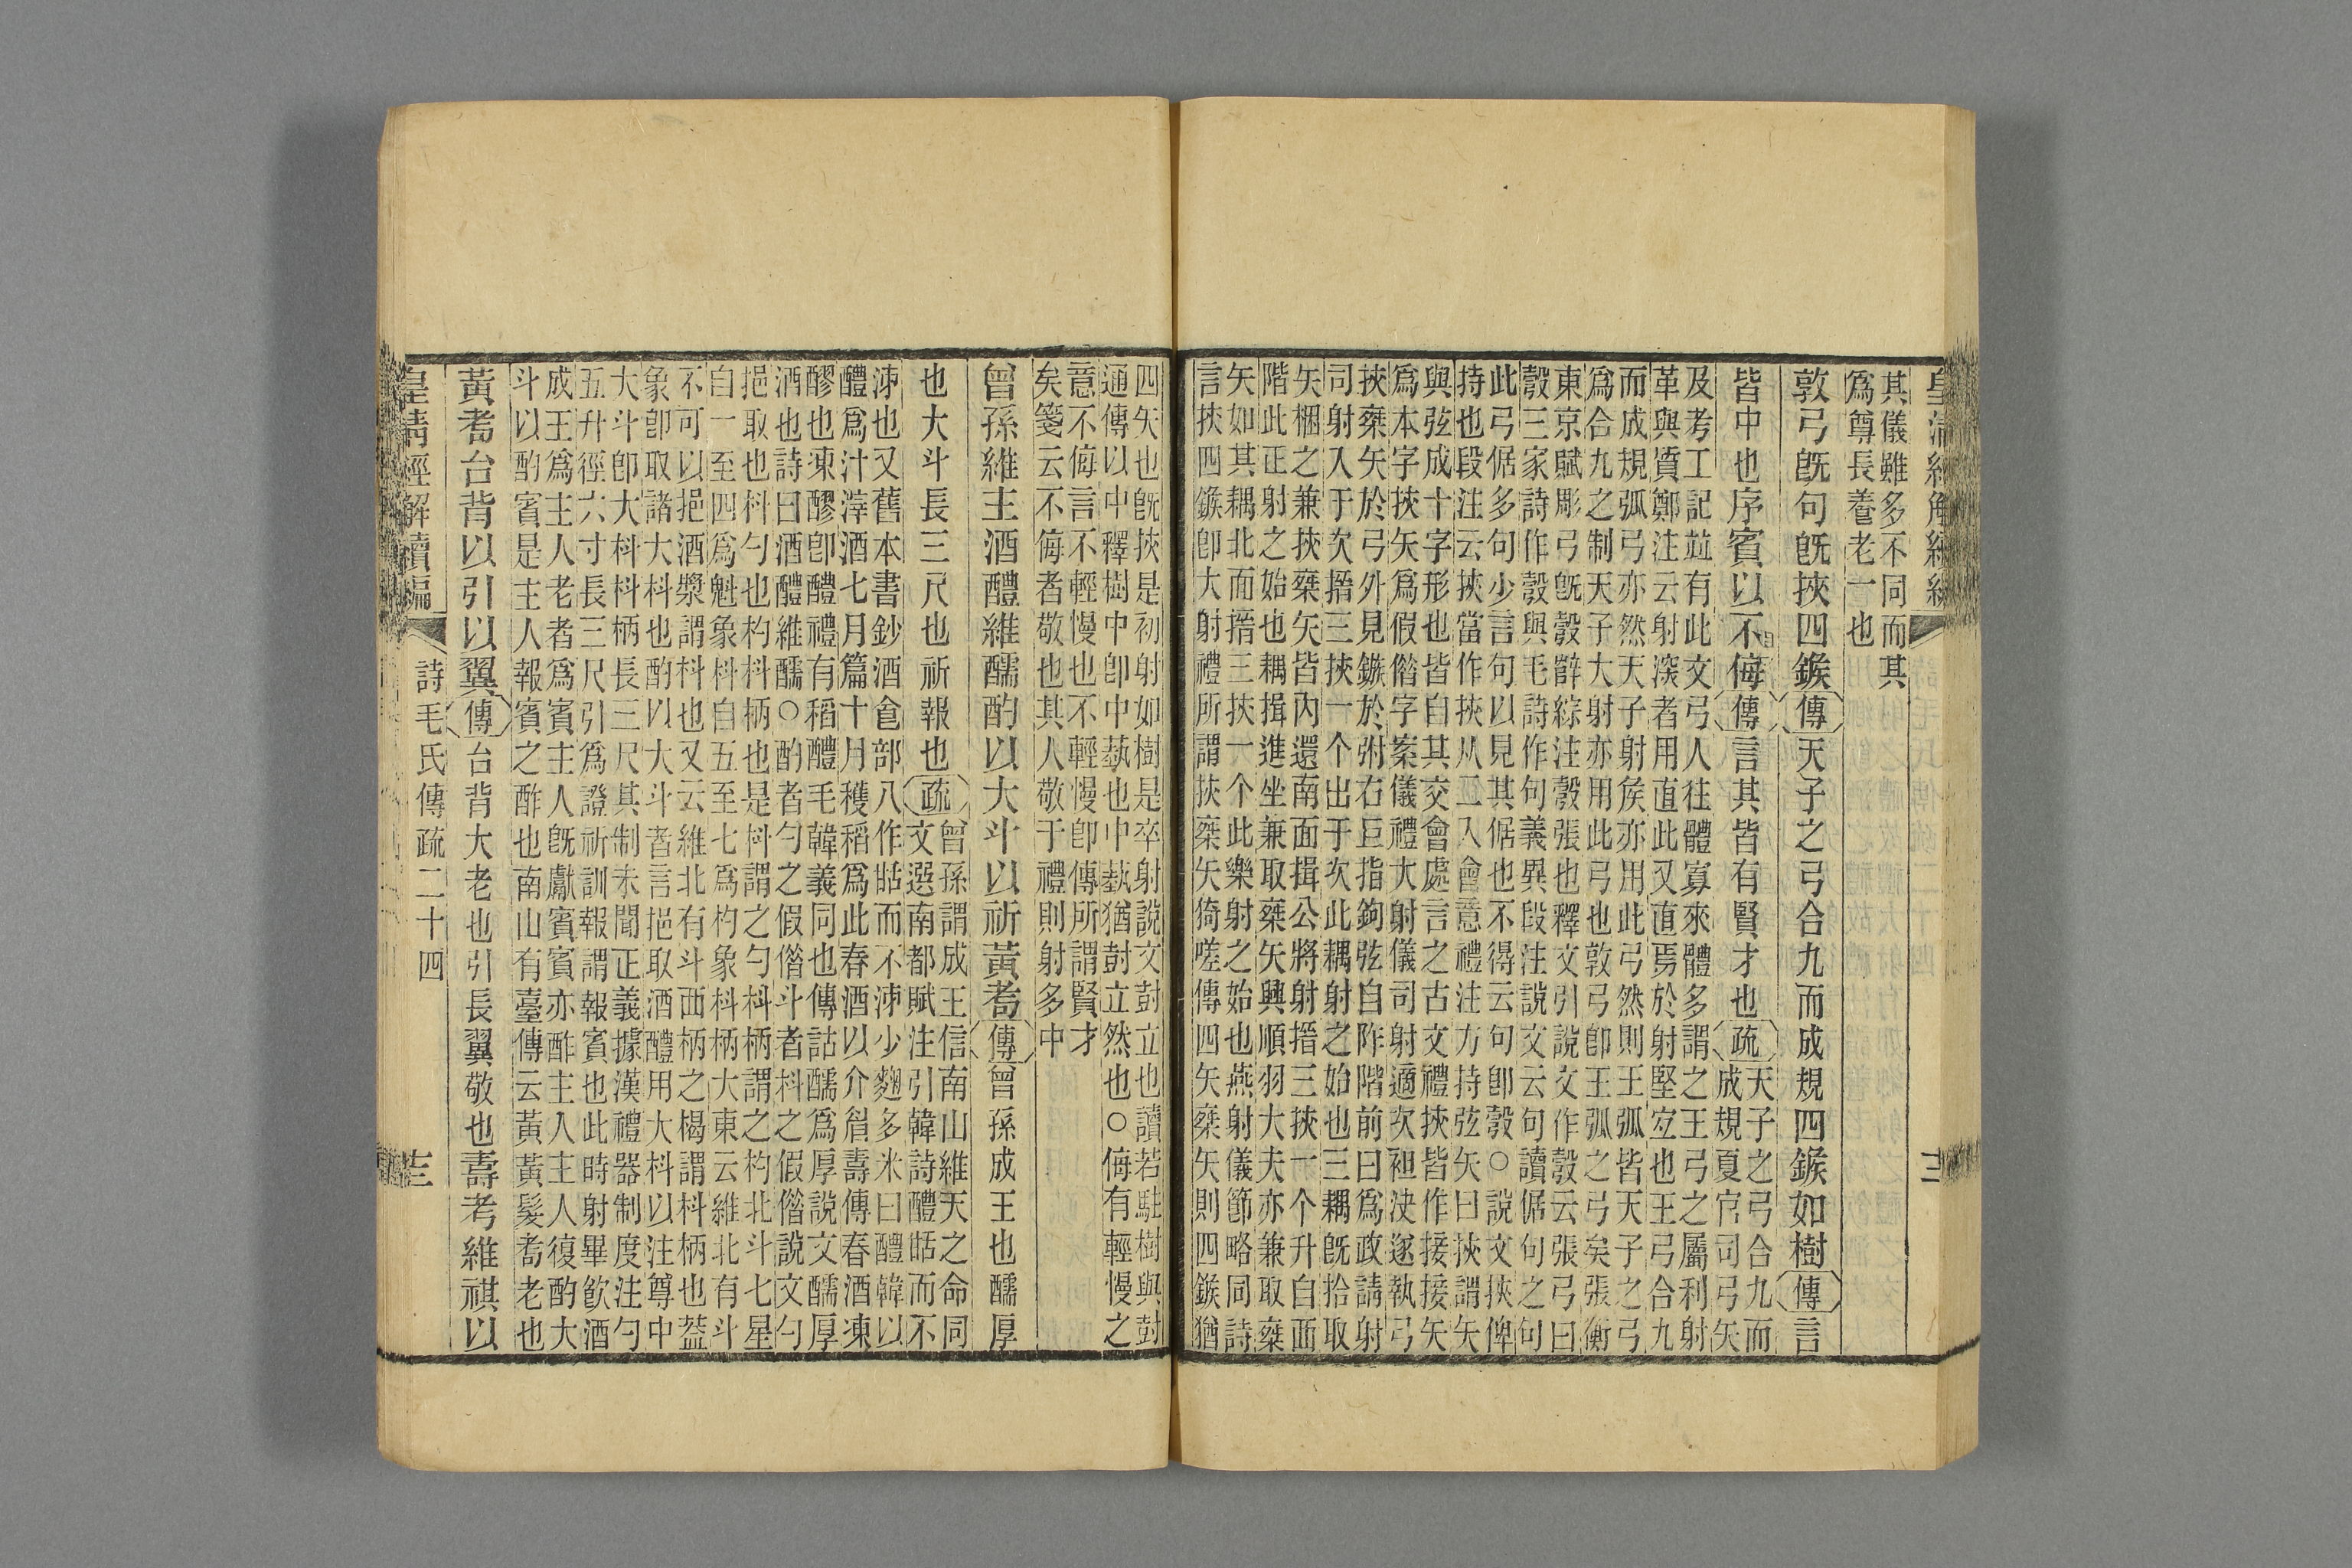 其儀雖多不同而其
爲尊長養老一也
敦弓旣句旣挾四鍭傳天子之弓合九而成規四鍭如樹傳言
皆中也序賓以不侮傳言其皆有賢才也疏
天子之弓合九而
成規夏官司弓矢
及考工記竝有此文弓人往體寡來體多謂之王弓之屬利射
革與質鄭注云射深者用直此又直焉於射堅宐也王弓合九
而成規弧弓亦然天子射矦亦用此弓然則王弧皆天子之弓
爲合九之制天子大射亦用此弓也敦弓卽王弧之弓矣張衡
東京賦彫弓旣彀薛綜注彀張也釋文引說文作彀云張弓曰
彀三家詩作彀與毛詩作句義異段注說文云句讀倨句之句
此弓倨多句少言句以見其倨也不得云句卽彀○說文挾俾
持也段注云挾當作挾从二入會意禮注方持弦矢曰挾謂矢
與弦成十字形也皆自其交會處言之古文禮挾皆作接接矢
爲本字挾矢爲假僭字案儀禮大射儀司射適次袒決遂執弓
挾椉矢於弓外見鏃於弣右巨指鉤弦自阼階前曰爲政請射
司射入于次搢三挾一个出于次此耦射之始也三耦旣拾取
矢梱之兼挾椉矢皆內還南面揖公將射搢三挾一个升自西
階此正射之始也耦揖進坐兼取椉矢興順羽大夫亦兼取椉
矢如其耦北面搢三挾一个此樂射之始也燕射儀節略同詩
言挾四鍭卽大射禮所謂挾椉矢猗嗟傳四矢椉矢則四鍭猶
四矢也旣挾是初射如樹是卒射說文尌立也讀若駐樹與尌
通傳以中釋樹中卽中蓺也中蓺猶尌立然也○侮有輕慢之
意不侮言不輕慢也不輕慢卽傳所謂賢才
矣箋云不侮者敬也其人敬于禮則射多中
曾孫維主酒醴維醹酌以大斗以祈黃耇傳曾孫成王也醹厚
也大斗長三尺也祈報也疏
曾孫謂成王信南山維天之命同
文選南都賦注引韓詩醴甛而不
泲也又舊本書鈔酒食部八作甛而不泲少麴多米曰醴韓以
醴爲汁滓酒七月篇十月穫稻爲此春酒以介眉壽傳春酒凍
醪也凍醪卽醴禮有稻醴毛韓義同也傳詁醹爲厚說文醹厚
酒也詩曰酒醴維醹○酌者勺之假僭斗者枓之假僭說文勺
挹取也枓勺也杓枓柄也是枓謂之勺枓柄謂之杓北斗七星
自一至四爲魁象枓自五至七爲杓象枓柄大東云維北有斗
不可以挹酒漿謂枓也又云維北有斗西柄之楬謂枓柄也葢
象卽取諸大枓也酌以大斗者言挹取酒醴用大枓以注尊中
大斗卽大枓枓柄長三尺其制未聞正義據漢禮器制度注勺
五升徑六寸長三尺引爲證祈訓報謂報賓也此時射畢飮酒
成王爲主人老者爲賓主人旣獻賓賓亦酢主人主人復酌大
斗以酌賓是主人報賓之酢也南山有臺傳云黃黃髮耇老也
黃耇台背以引以翼傳台背大老也引長翼敬也壽考維祺以
皇淸經解續編
詩毛氏傳疏二十四